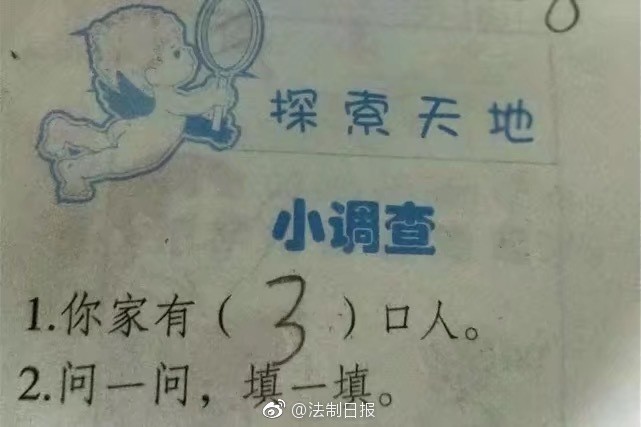 8
探索天地
小调查
1.你家有（3）口人。
2.问一问，填一填。
@法制日报